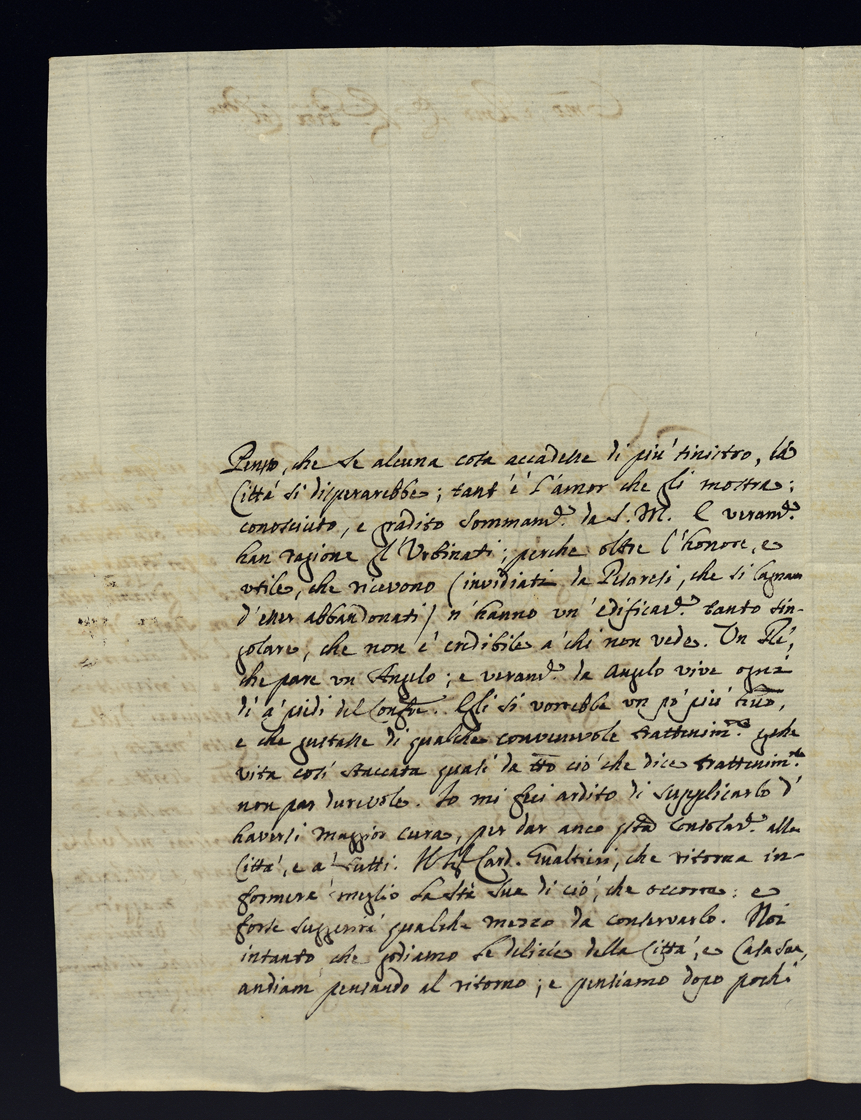 Penso, che se alcuna cosa accadesse di più sinistro, la
Città si disperarebbe; tant'è l'amor che gli mostra;
conosciuto, e gradito sommam.e da S. M. E veram.e
han ragione gl'Urbinati; perche oltre l'honore, e
utile, che ricevono (invidiati da Pesaresi, che si lagnan
d'esser abbandonati) n'hanno un'edificaz.e tanto sin-
golare, che non è credibile a' chi non vede. Un Rè,
che pare un Angelo; e veram.e da Angelo vive ogni
dì a' piedi del Conf.re. Egli si vorrebbe un pò più
e che gustasse di qualche convenevole trattenim.to
vita così staccata quasi da tto ciò che dice trattenim.to
non par durevole. Io mi feci ardito di supplicarlo d'
haversi maggior cura, per dar anco q.sta consolaz.e alla
Città, e a' tutti. Card. Gualtieri, che ritorna in-
formerà meglio la Stà Sua di ciò, che occorra: e
forse suggerirà qualche mezzo da conservarlo. Noi
intanto che godiamo le delizie della Città, e Casa sua,
andiam pensando al ritorno; e pensiamo dopo pochi